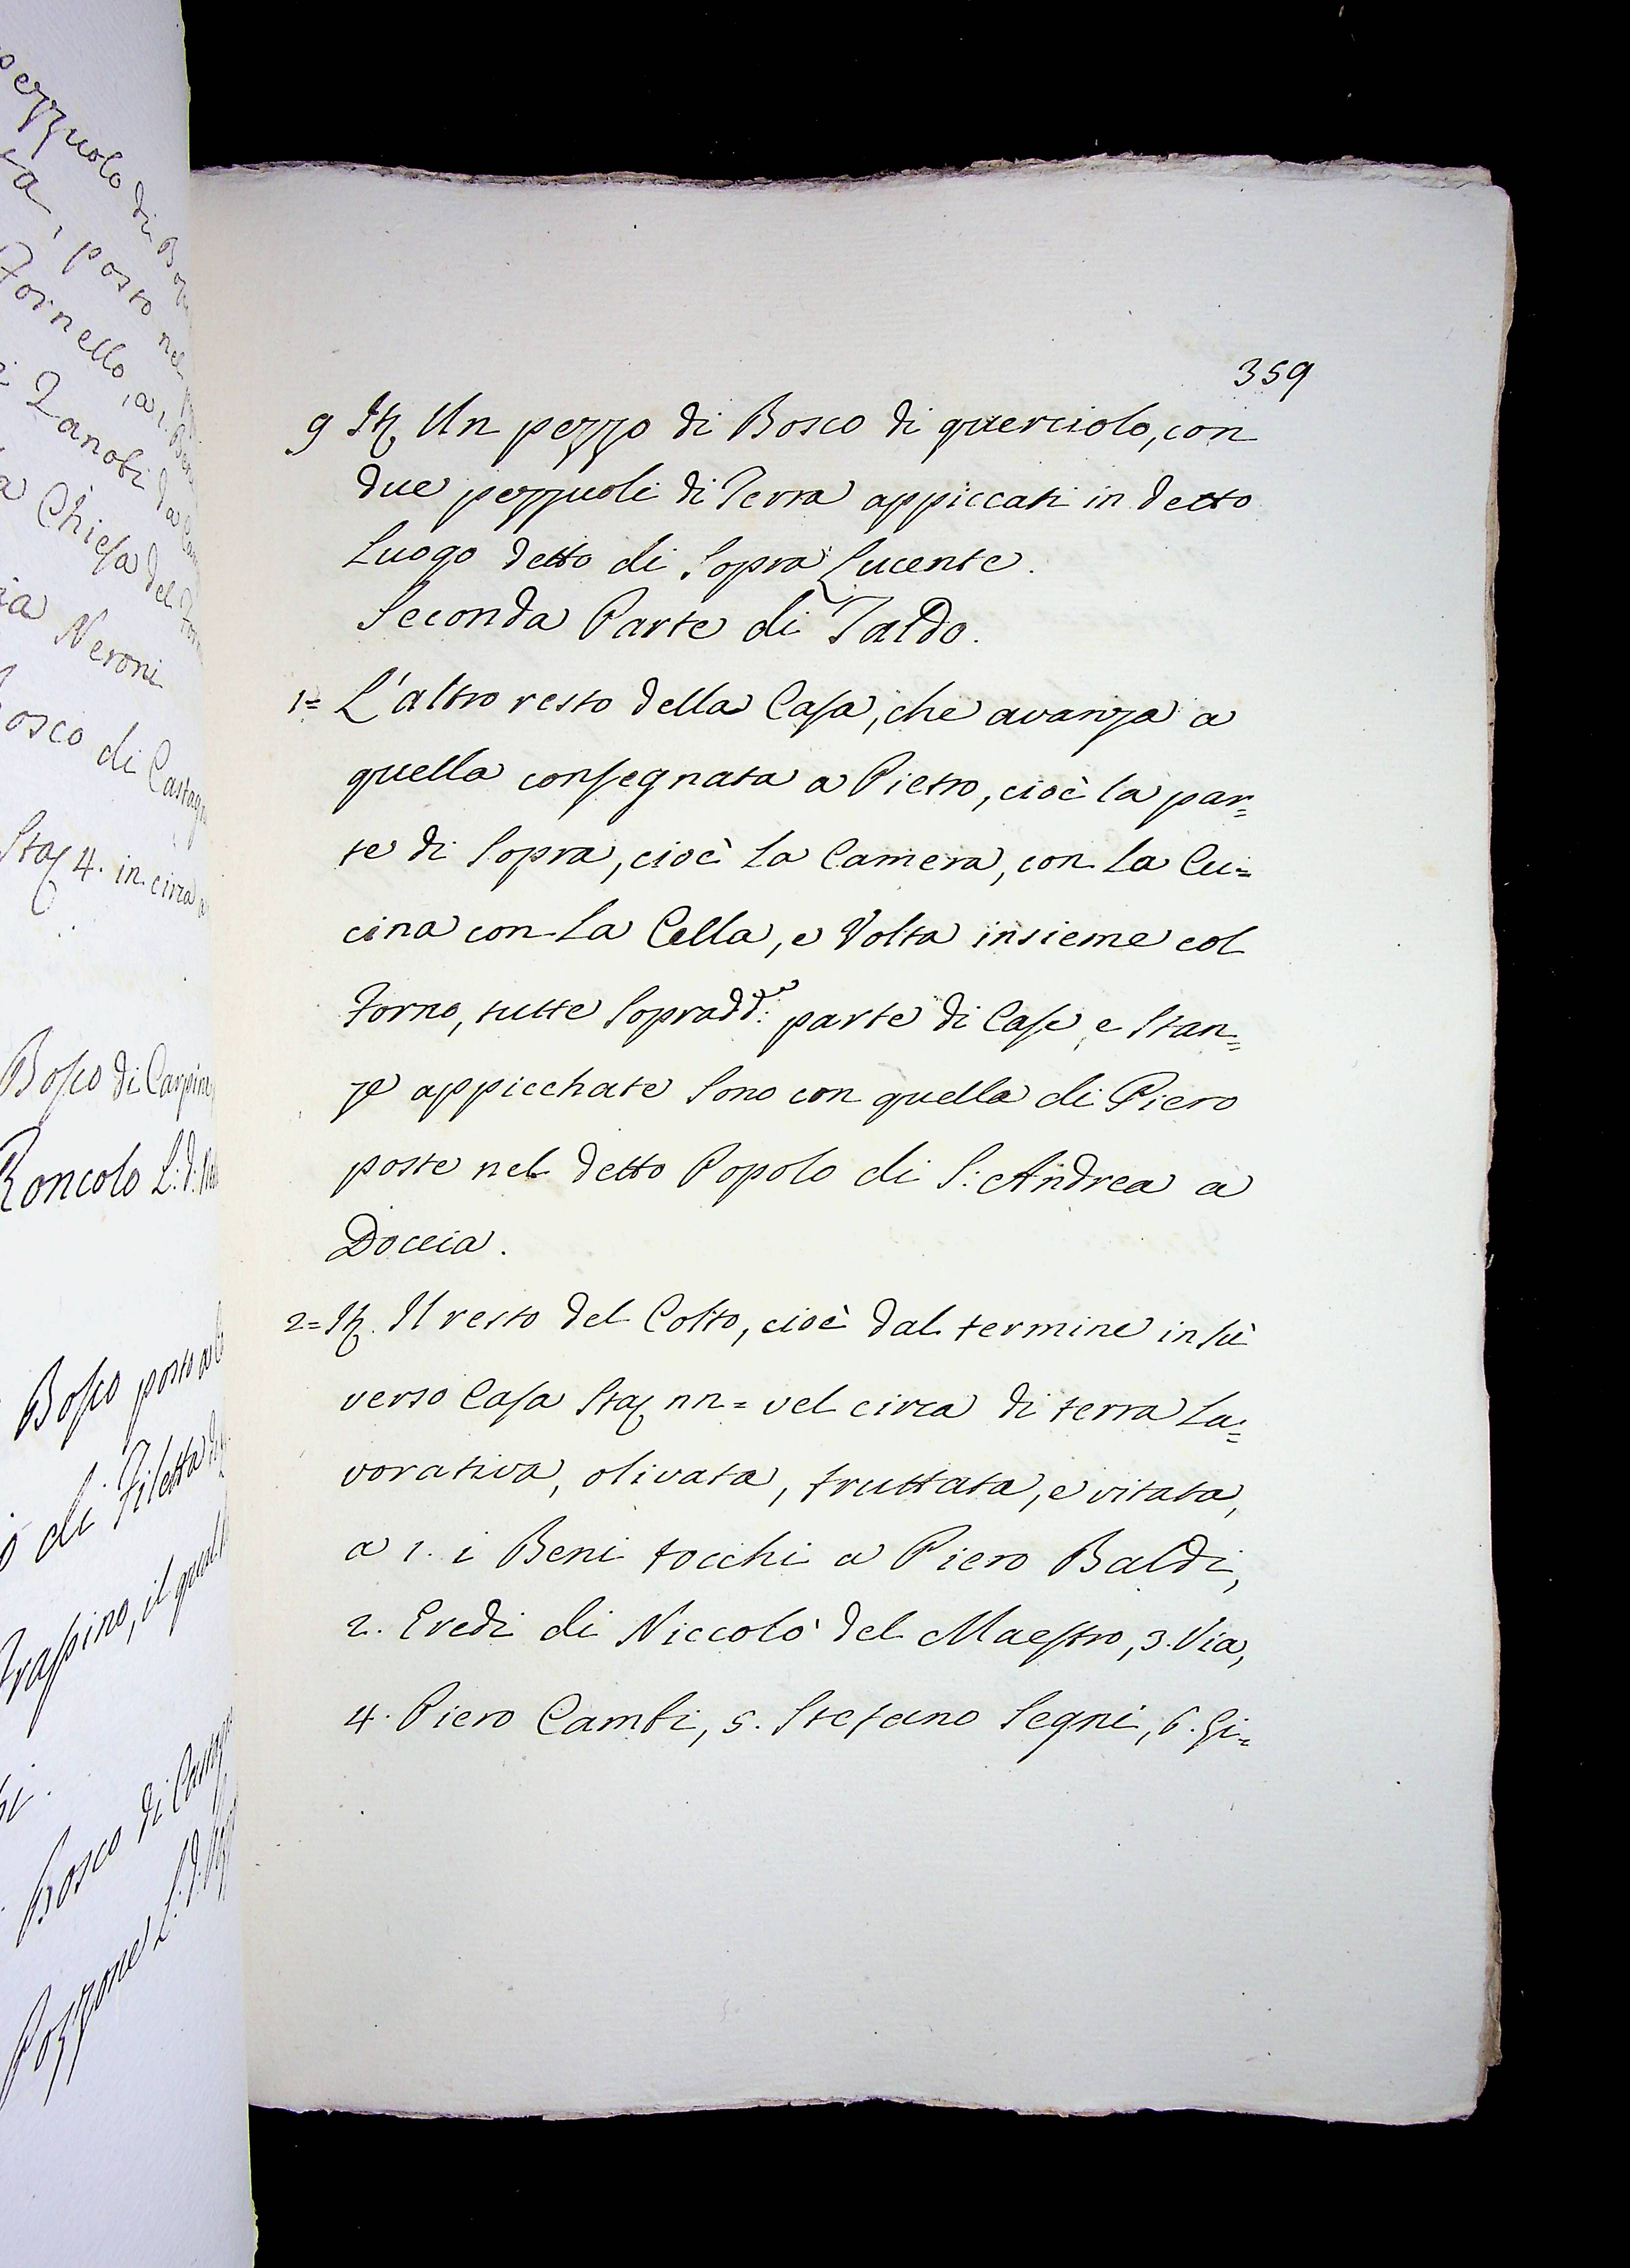 pezzuolo di
ta, posto nel
Fornello, a 1.
Zanobi da
a Chiesa del
ia Neroni
osco di Castagn
Sta 4. in circa a
Bosco di Carpine
Roncolo L: d:
Bosco posto a
di Filetta
Frassino, il qual
Bosco di
Pozzone L: d:
359
9 It. Un pezzo di Bosco di querciolo, con
due pezzuoli di Terra appiccati in detto
Luogo detto di Sopra Lucente.
Seconda Parte di Taldo.
1= L'altro resto della Casa, che avanza a
quella consegnata a Pietro, cioè la par=
te di Sopra, cioè La Camera, con La Cu=
cina con La Cella, e Volta insieme col
Forno, tutte Sopradd:e parte di Case, e Stan=
ze appicchate Sono con quella di Piero
poste nel detto Popolo di S: Andrea a
Doccia.
2= It. Il resto del Colto, cioè dal termine in sù
verso Casa Sta nn= vel circa di terra La=
vorativa, olivata, fruttata, e vitata,
a 1. i Beni tocchi a Piero Baldi,
2. Eredi di Niccolò del Maestro, 3. Via,
4. Piero Cambi, 5. Stefano Segni, 6. Gi=